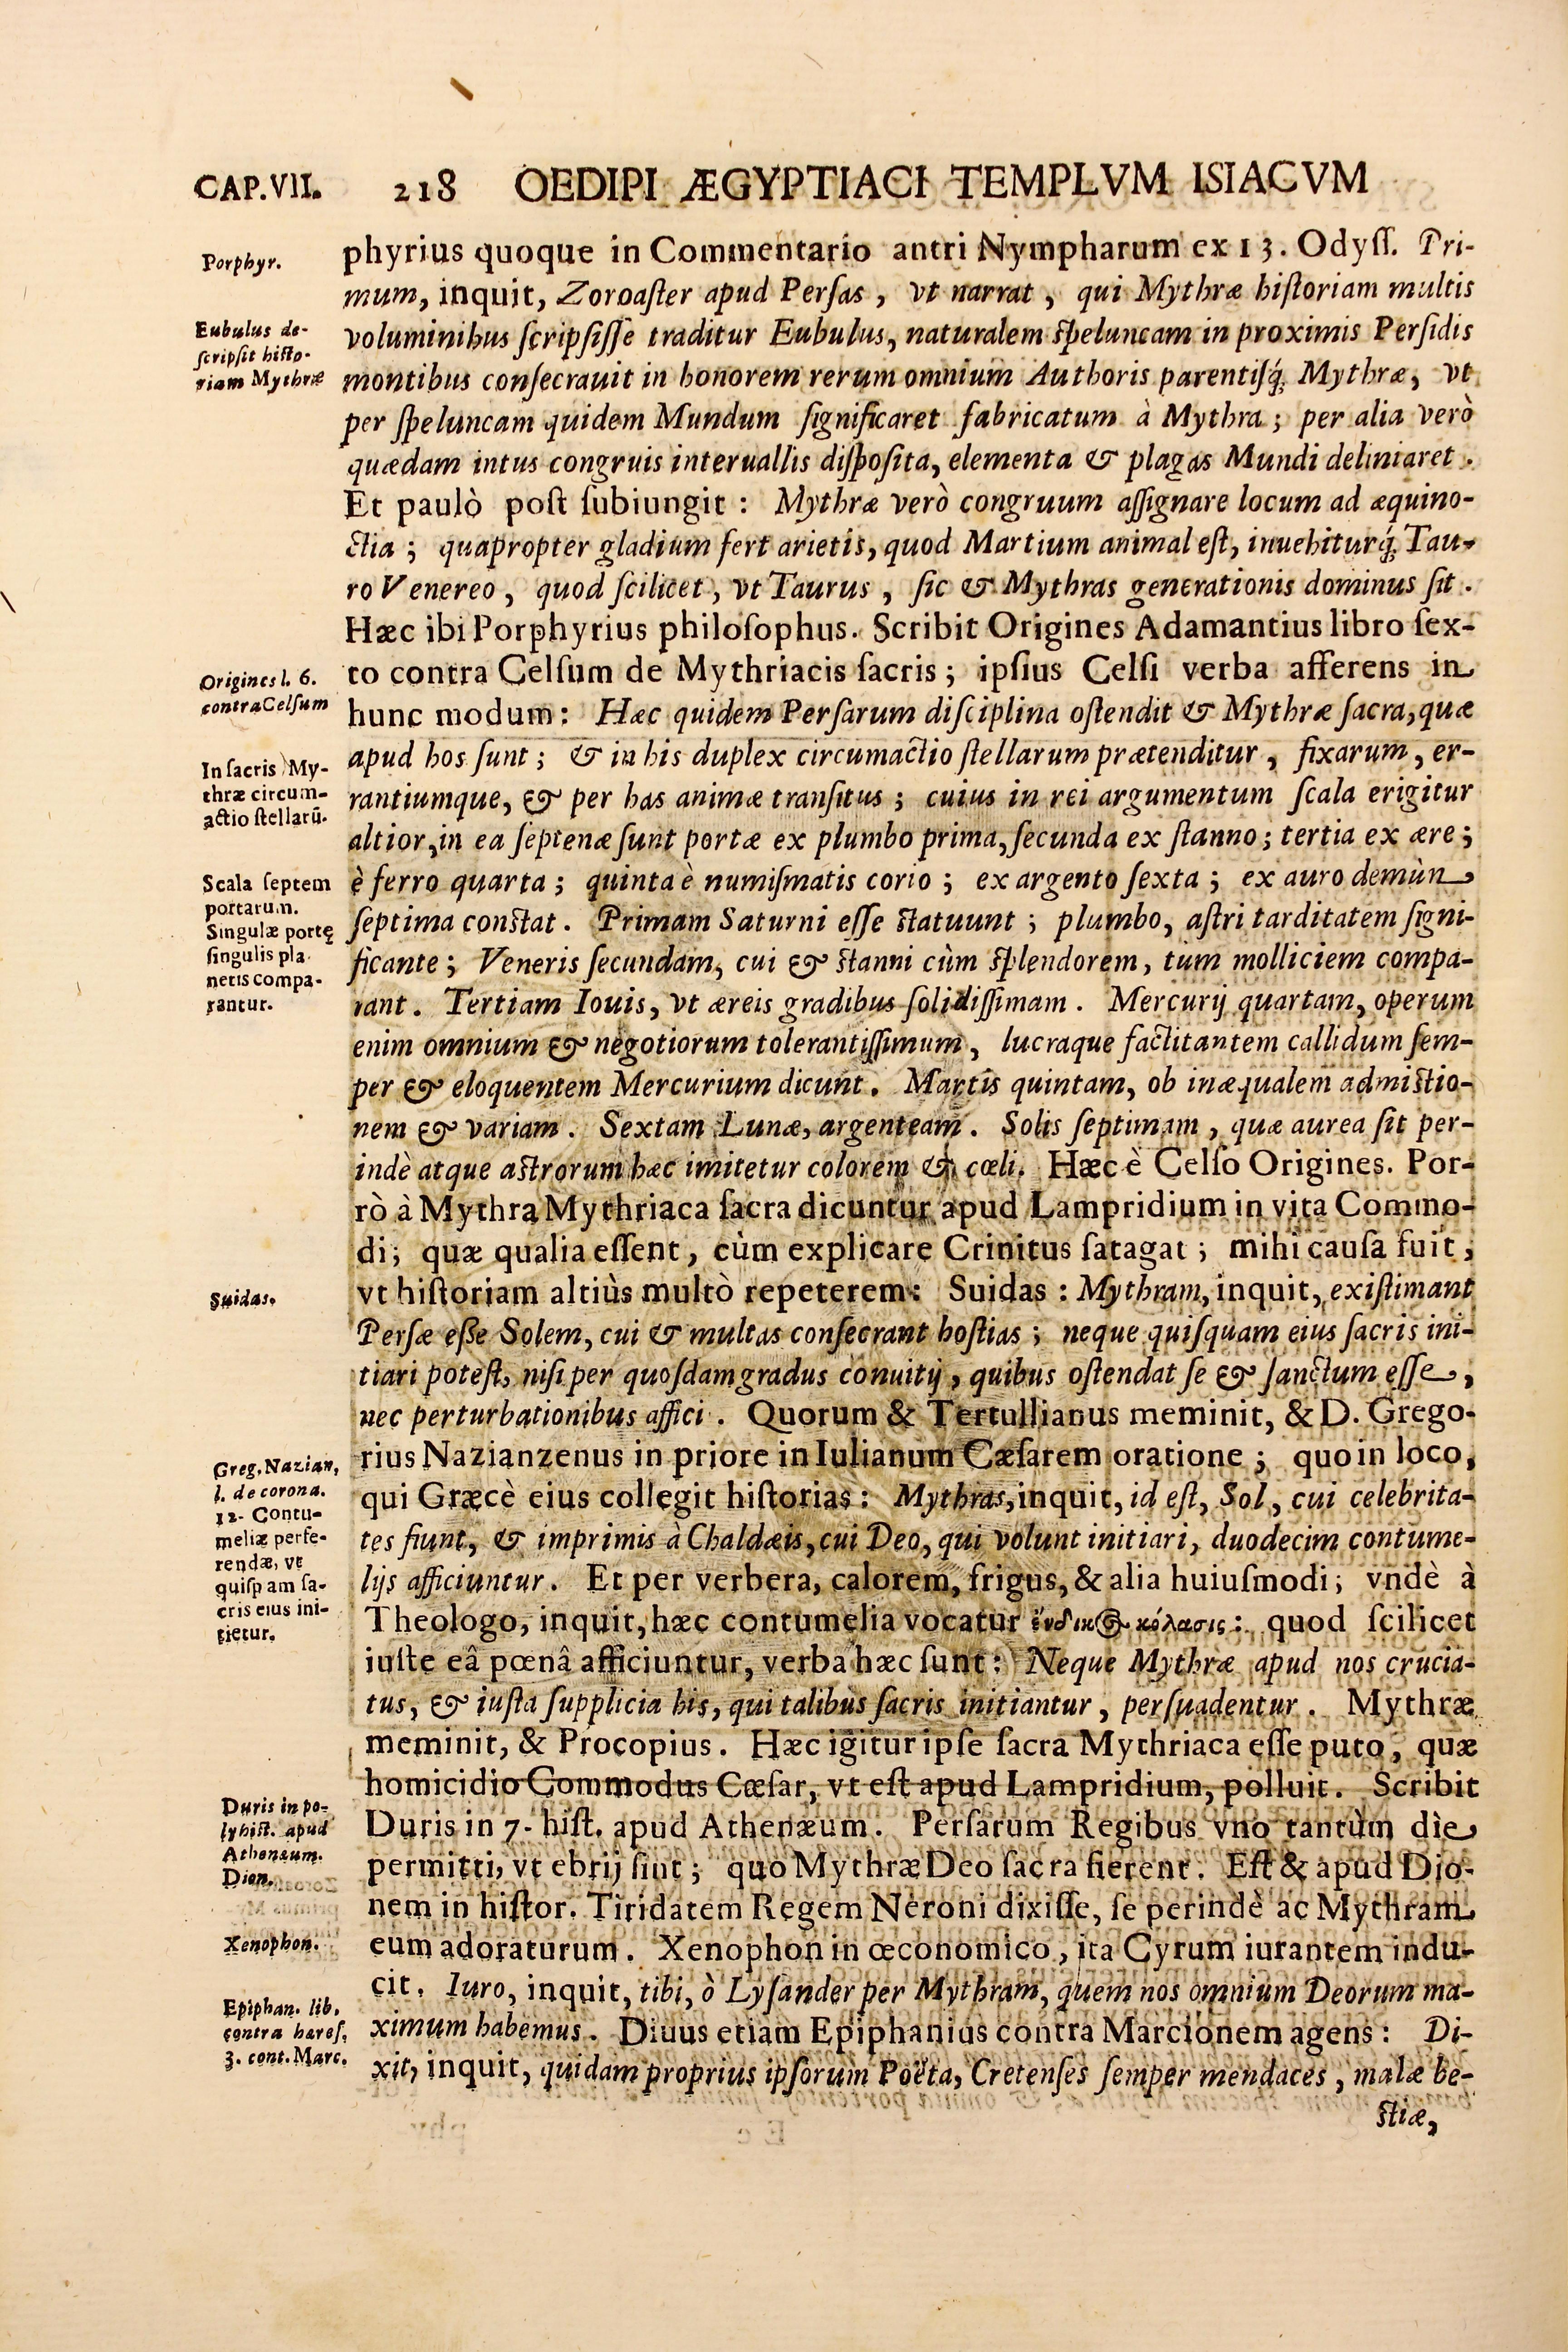 CAP.VII. 218 OEDIPI ÆGYPTIACI TEMPLVM ISIACVM
Porphyr.
phyrius quoque in Commentario antri Nympharum ex 13. Odyſſ. Pri-
mum, inquit, Zoroaſter apud Perſas, vt narrat, qui Mythræ hiſtoriam multis
Eubulus de-
ſcripſit hiſto-
riam Mythræ
voluminibus ſcripſiſſe traditur Eubulus, naturalem ſpeluncam in proximis Perſidis
montibus conſecrauit in honorem rerum omnium Authoris parentiſq́; Mythræ, vt
per ſpeluncam quidem Mundum ſignificaret fabricatum à Mythra; per alia verò
quædam intus congruis interuallis diſpoſita, elementa & plagas Mundi deliniaret.
Et paulò poſt ſubiungit: Mythræ verò congruum aſſignare locum ad æquino-
ctia; quapropter gladium fert arietis, quod Martium animal eſt, inuehiturq́; Tau-
ro Venereo, quod ſcilicet, vt Taurus, ſic & Mythras generationis dominus ſit.
Hæc ibi Porphyrius philoſophus. Scribit Origines Adamantius libro ſex-
Origines l. 6.
contra Celſum
to contra Celſum de Mythriacis ſacris; ipſius Celſi verba afferens in
hunc modum: Hæc quidem Perſarum diſciplina oſtendit & Mythræ ſacra, quæ
In ſacris My-
thræ circum-
actio ſtellarū.
apud hos ſunt; & in his duplex circumactio ſtellarum prætenditur, fixarum, er-
rantiumque, & per has animæ tranſitus; cuius in rei argumentum ſcala erigitur
altior, in ea ſeptenæ ſunt portæ ex plumbo prima, ſecunda ex ſtanno; tertia ex ære;
Scala ſeptem
portarum.
Singulæ portę
ſingulis pla-
netis compa-
rantur.
è ferro quarta; quinta è numiſmatis corio; ex argento ſexta; ex auro demùn
ſeptima conſtat. Primam Saturni eſſe ſtatuunt; plumbo, aſtri tarditatem ſigni-
ficante; Veneris ſecundam, cui & ſtanni cùm ſplendorem, tùm molliciem compa-
rant. Tertiam Iouis, vt æreis gradibus ſolidiſſimam. Mercurij quartam, operum
enim omnium & negotiorum tolerantiſſimum, lucraque factitantem callidum ſem-
per & eloquentem Mercurium dicunt. Martis quintam, ob inæqualem admiſtio-
nem & variam. Sextam Lunæ, argenteam. Solis ſeptimam, quæ aurea ſit per-
indè atque aſtrorum hæc imitetur colorem & cœli. Hæc è Celſo Origines. Por-
rò à Mythra Mythriaca ſacra dicuntur apud Lampridium in vita Commo-
di; quæ qualia eſſent, cùm explicare Crinitus ſatagat; mihi cauſa fuit,
Suidas.
vt hiſtoriam altiùs multò repeterem: Suidas: Mythram, inquit, exiſtimant
Perſæ eſſe Solem, cui & multas conſecrant hoſtias; neque quiſquam eius ſacris ini-
tiari poteſt, niſi per quoſdam gradus conuitij, quibus oſtendat ſe & ſanctum eſſe,
nec perturbationibus affici. Quorum & Tertullianus meminit, & D. Grego-
Greg. Nazian.
l. de corona.
12. Contu-
meliæ perfe-
rendæ, vt
quiſpam ſa-
cris eius ini-
tietur.
rius Nazianzenus in priore in Iulianum Cæſarem oratione; quo in loco,
qui Græcè eius collegit hiſtorias: Mythras, inquit, id eſt, Sol, cui celebrita-
tes fiunt, & imprimis à Chaldæis, cui Deo, qui volunt initiari, duodecim contume-
lijs afficiuntur. Et per verbera, calorem, frigus, & alia huiuſmodi; vndè à
Theologo, inquit, hæc contumelia vocatur ἔνδικος κόλασις: quod ſcilicet
iuſte eâ pœnâ afficiuntur, verba hæc ſunt: Neque Mythræ apud nos crucia-
tus, & iuſta ſupplicia his, qui talibus ſacris initiantur, perſuadentur. Mythræ
meminit, & Procopius. Hæc igitur ipſe ſacra Mythriaca eſſe puto, quæ
homicidio Commodus Cæſar, vt eſt apud Lampridium, polluit. Scribit
Duris in po-
lyhiſt. apud
Athenæum.
Dion.
Duris in 7. hiſt. apud Athenæum. Perſarum Regibus vno tantùm die
permitti, vt ebrij ſint; quo Mythræ Deo ſacra fierent. Eſt & apud Dio-
nem in hiſtor. Tiridatem Regem Neroni dixiſſe, ſe perindè ac Mythram
Xenophon.
eum adoraturum. Xenophon in œconomico, ita Cyrum iurantem indu-
cit. Iuro, inquit, tibi, ò Lyſander per Mythram, quem nos omnium Deorum ma-
Epiphan. lib.
contra hæreſ.
3. cont. Marc.
ximum habemus. Diuus etiam Epiphanius contra Marcionem agens: Di-
xit, inquit, quidam proprius ipſorum Poëta, Cretenſes ſemper mendaces, malæ be-
ſtiæ,